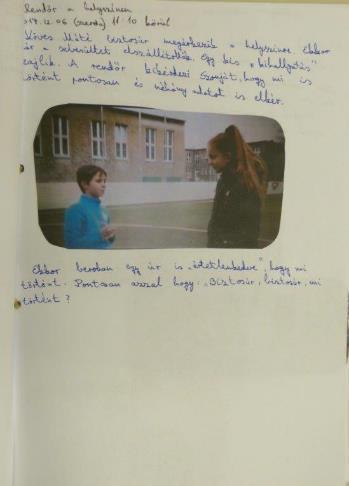 Rendőr a helyszínen
017.12.06 (szerda) 11:10 körül
Köves Máté biztosúr megérkezik a helyszínre. Ekkor
ár a sérültet elszállították. Egy kis „kihallgatás"
zajlik. A rendőr kikérdezi Szonját, hogy mi is
történt pontosan és néhány adatot is elkér.
Ekkor beroban egy úr is „értetlenkedve", hogy mi
történt. Pontosan azzal hogy: „Biztosúr, biztosúr, mi
történt?